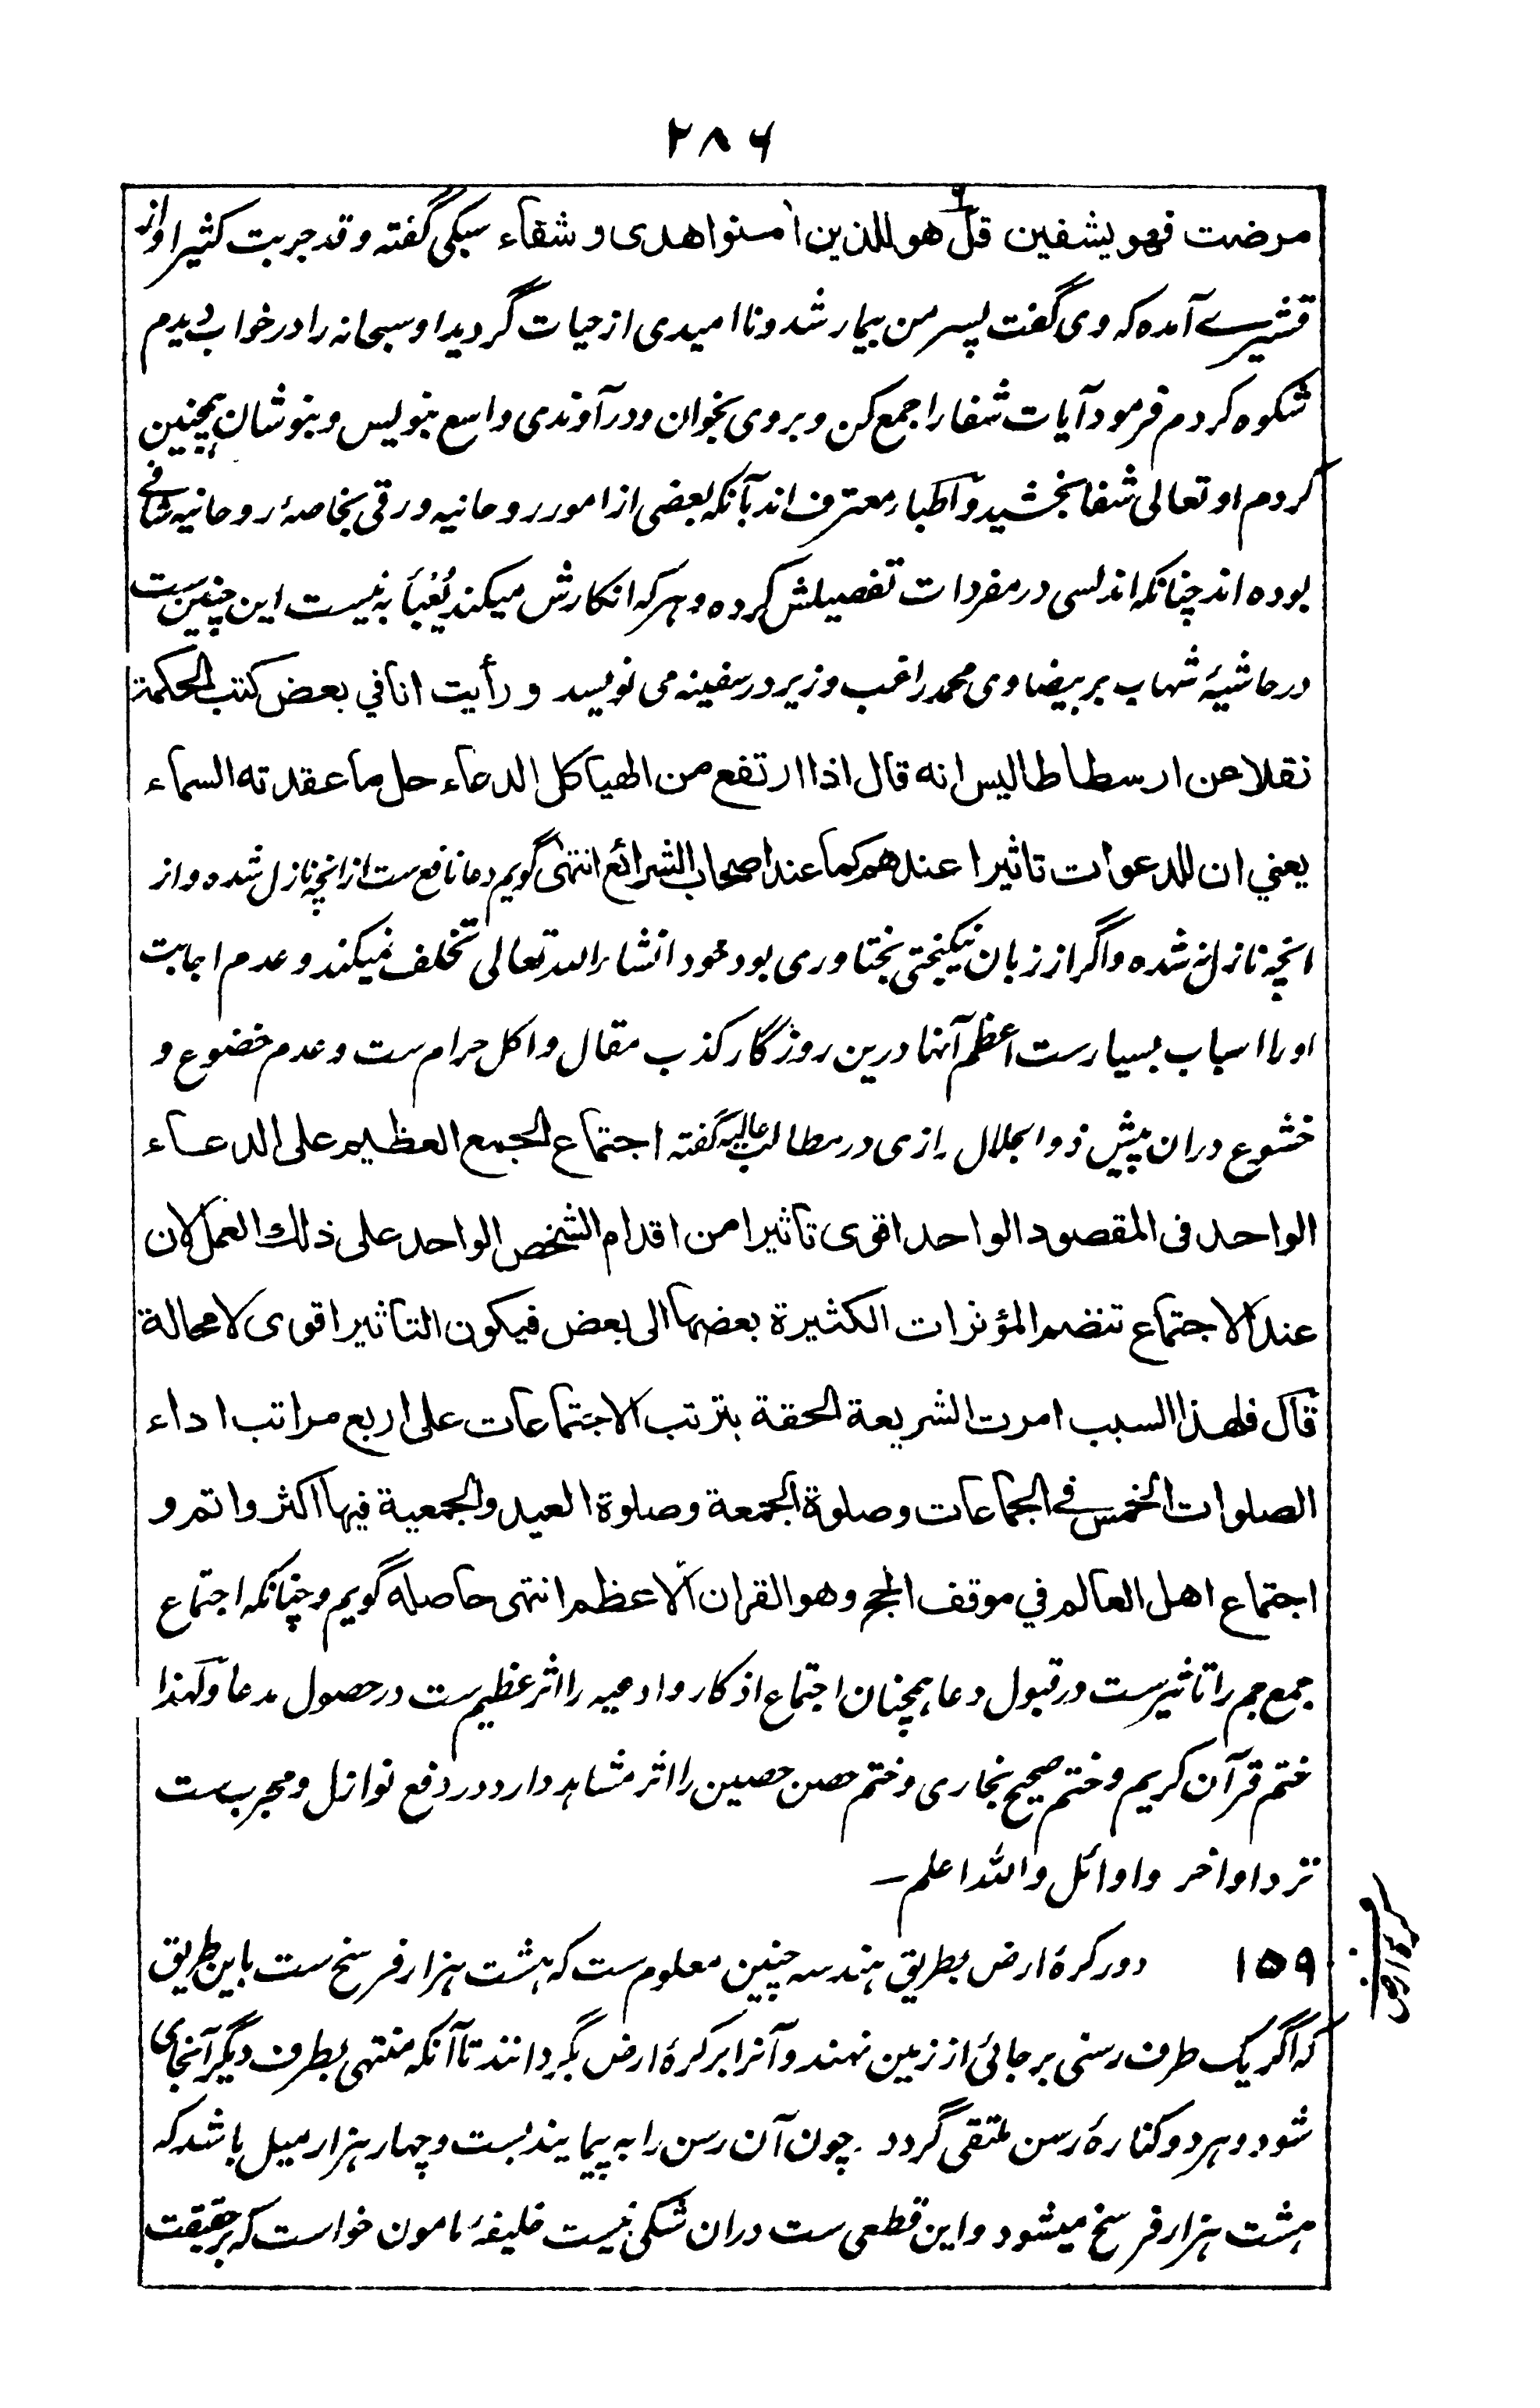 ۲۸۶
مرضت فهو یشفین قل هو للذین اٰمنوا هدی و شفاء سبکی گفته و قد جربت کثیرا و از
قشیرے آمده که وی گفت پسر من بیمار شد و ناامیدی از حیات گردید او سبحانه را در خواب دیدم
شکوه کردم فرمود آیات شفا را جمع کن و بروی بخوان و در آوندی واسع بنویس و بنوشان همچنین
کردم او تعالی شفا بخشید و اطباء معترف اند بآنکه بعضی از امور روحانیه و رقی بخاصهٔ روحانیه شافے
بوده اند چنانکه اندلسی در مفردات تفصیلش کرده و هر که انکارش میکند یُعْبَأ به نیست این چنین ست
در حاشیهٔ شهاب بر بیضاوی محمد راغب وزیر در سفینه می نویسد و رأیت انا في بعض کتب الحکمة
نقلا عن ارسطاطالیس انه قال اذا ارتفع من الهیاکل الدعاء حل ما عقدته السماء
یعني ان للدعوات تاثیرا عندهم کما عند اصحاب الشرائع انتهی گویم دعا نافع ست از انچه نازل شده و از
انچه نازل نه شده و اگر از زبان نیکبختی بختاوری بود خود انشاء الله تعالی تخلف نمیکند و عدم اجابت
او را اسباب بسیارست اعظم آنها درین روزگار کذب مقال و اکل حرام ست و عدم خضوع و
خشوع دران پیش ذو الجلال رازی در مطالب عالیه گفته اجتماع الجمع العظیم علی الدعاء
الواحد فی المقصود الواحد اقوی تاثیرا من اقدام الشخص الواحد علی ذلك العمل لان
عند الاجتماع تنضم المؤثرات الکثیرة بعضها الی بعض فیکون التاثیر اقوی لا محالة
قال فلهذا السبب امرت الشریعة الحقة بترتب الاجتماعات علی اربع مراتب اداء
الصلوات الخمس فے الجماعات و صلوة الجمعة و صلوة العید و الجمعیة فیها اکثر و اتم و
اجتماع اهل العالم في موقف الحج و هو القران الاعظم انتهی حاصله گویم و چنانکه اجتماع
جمع جم را تاثیرست در قبول دعا همچنان اجتماع اذکار و ادعیه را اثر عظیم ست در حصول مدعا و لهذا
ختم قرآن کریم و ختم صحیح بخاری و ختم حصن حصین را اثر مشاهد دارد در دفع نوازل و مجرب ست
نزد اواخر و اوائل والله اعلم ـ
۱۵۹ دور کرهٔ ارض بطریق هندسه چنین معلوم ست که هشت هزار فرسخ ست باین طریق
که اگر یک طرف رسنی بر جائی از زمین نهند و آنرا بر کرهٔ ارض بگردانند تا آنکه منتهی بطرف دیگر آنجای
شود و هر دو کنارهٔ رسن ملتقی گردد . چون آن رسن را به پیمایند بست و چهار هزار میل باشد که
هشت هزار فرسخ میشود و این قطعی ست دران شکی نیست خلیفهٔ مامون خواست که بر حقیقت
کرهٔ ارض